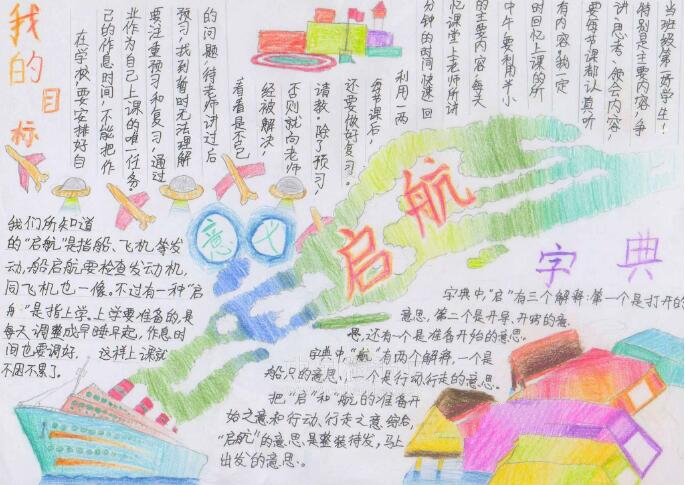 我的目标
在学校,要安排好自
己的作息时间,不能把作
业作为自己上课的唯一任务。
要注重预习和复习,通过
预习,找到暂时无法理解
的问题,待老师讲过后
看看是不是已
经被解决,
否则就向老师
请教。除了预习,
还要做好复习。
每节课后,
利用一两
分钟的时间快速回
忆课堂上老师所讲
的主要内容,每天
中午要利用半小
时回忆上课的所
有内容,我一定
要每节课都认真听
讲、思考、领会内容,
特别是主要内容,争
当班级第一好学生!
启航
意义
我们所知道
的"启航"是指船、飞机等发
动,船启航要检查发动机,
同飞机也一像。不过有一种"启
航"是指上学。上学要准备的,是
每天调整成早睡早起,作息时
间也要调好,这样上课就
不困不累了。
字典
字典中,"启"有三个解释:第一个是打开的
意思,第二个是开导、开窍的意
思,还有一个是准备开始的意思。
字典中,"航"有两个解释,一个是
船只的意思,一个是行动,行走的意思。
把,"启"和"航的准备开
始之意和行动、行走之意结合,
"启航"的意思,是整装待发,马上
出发的意思。